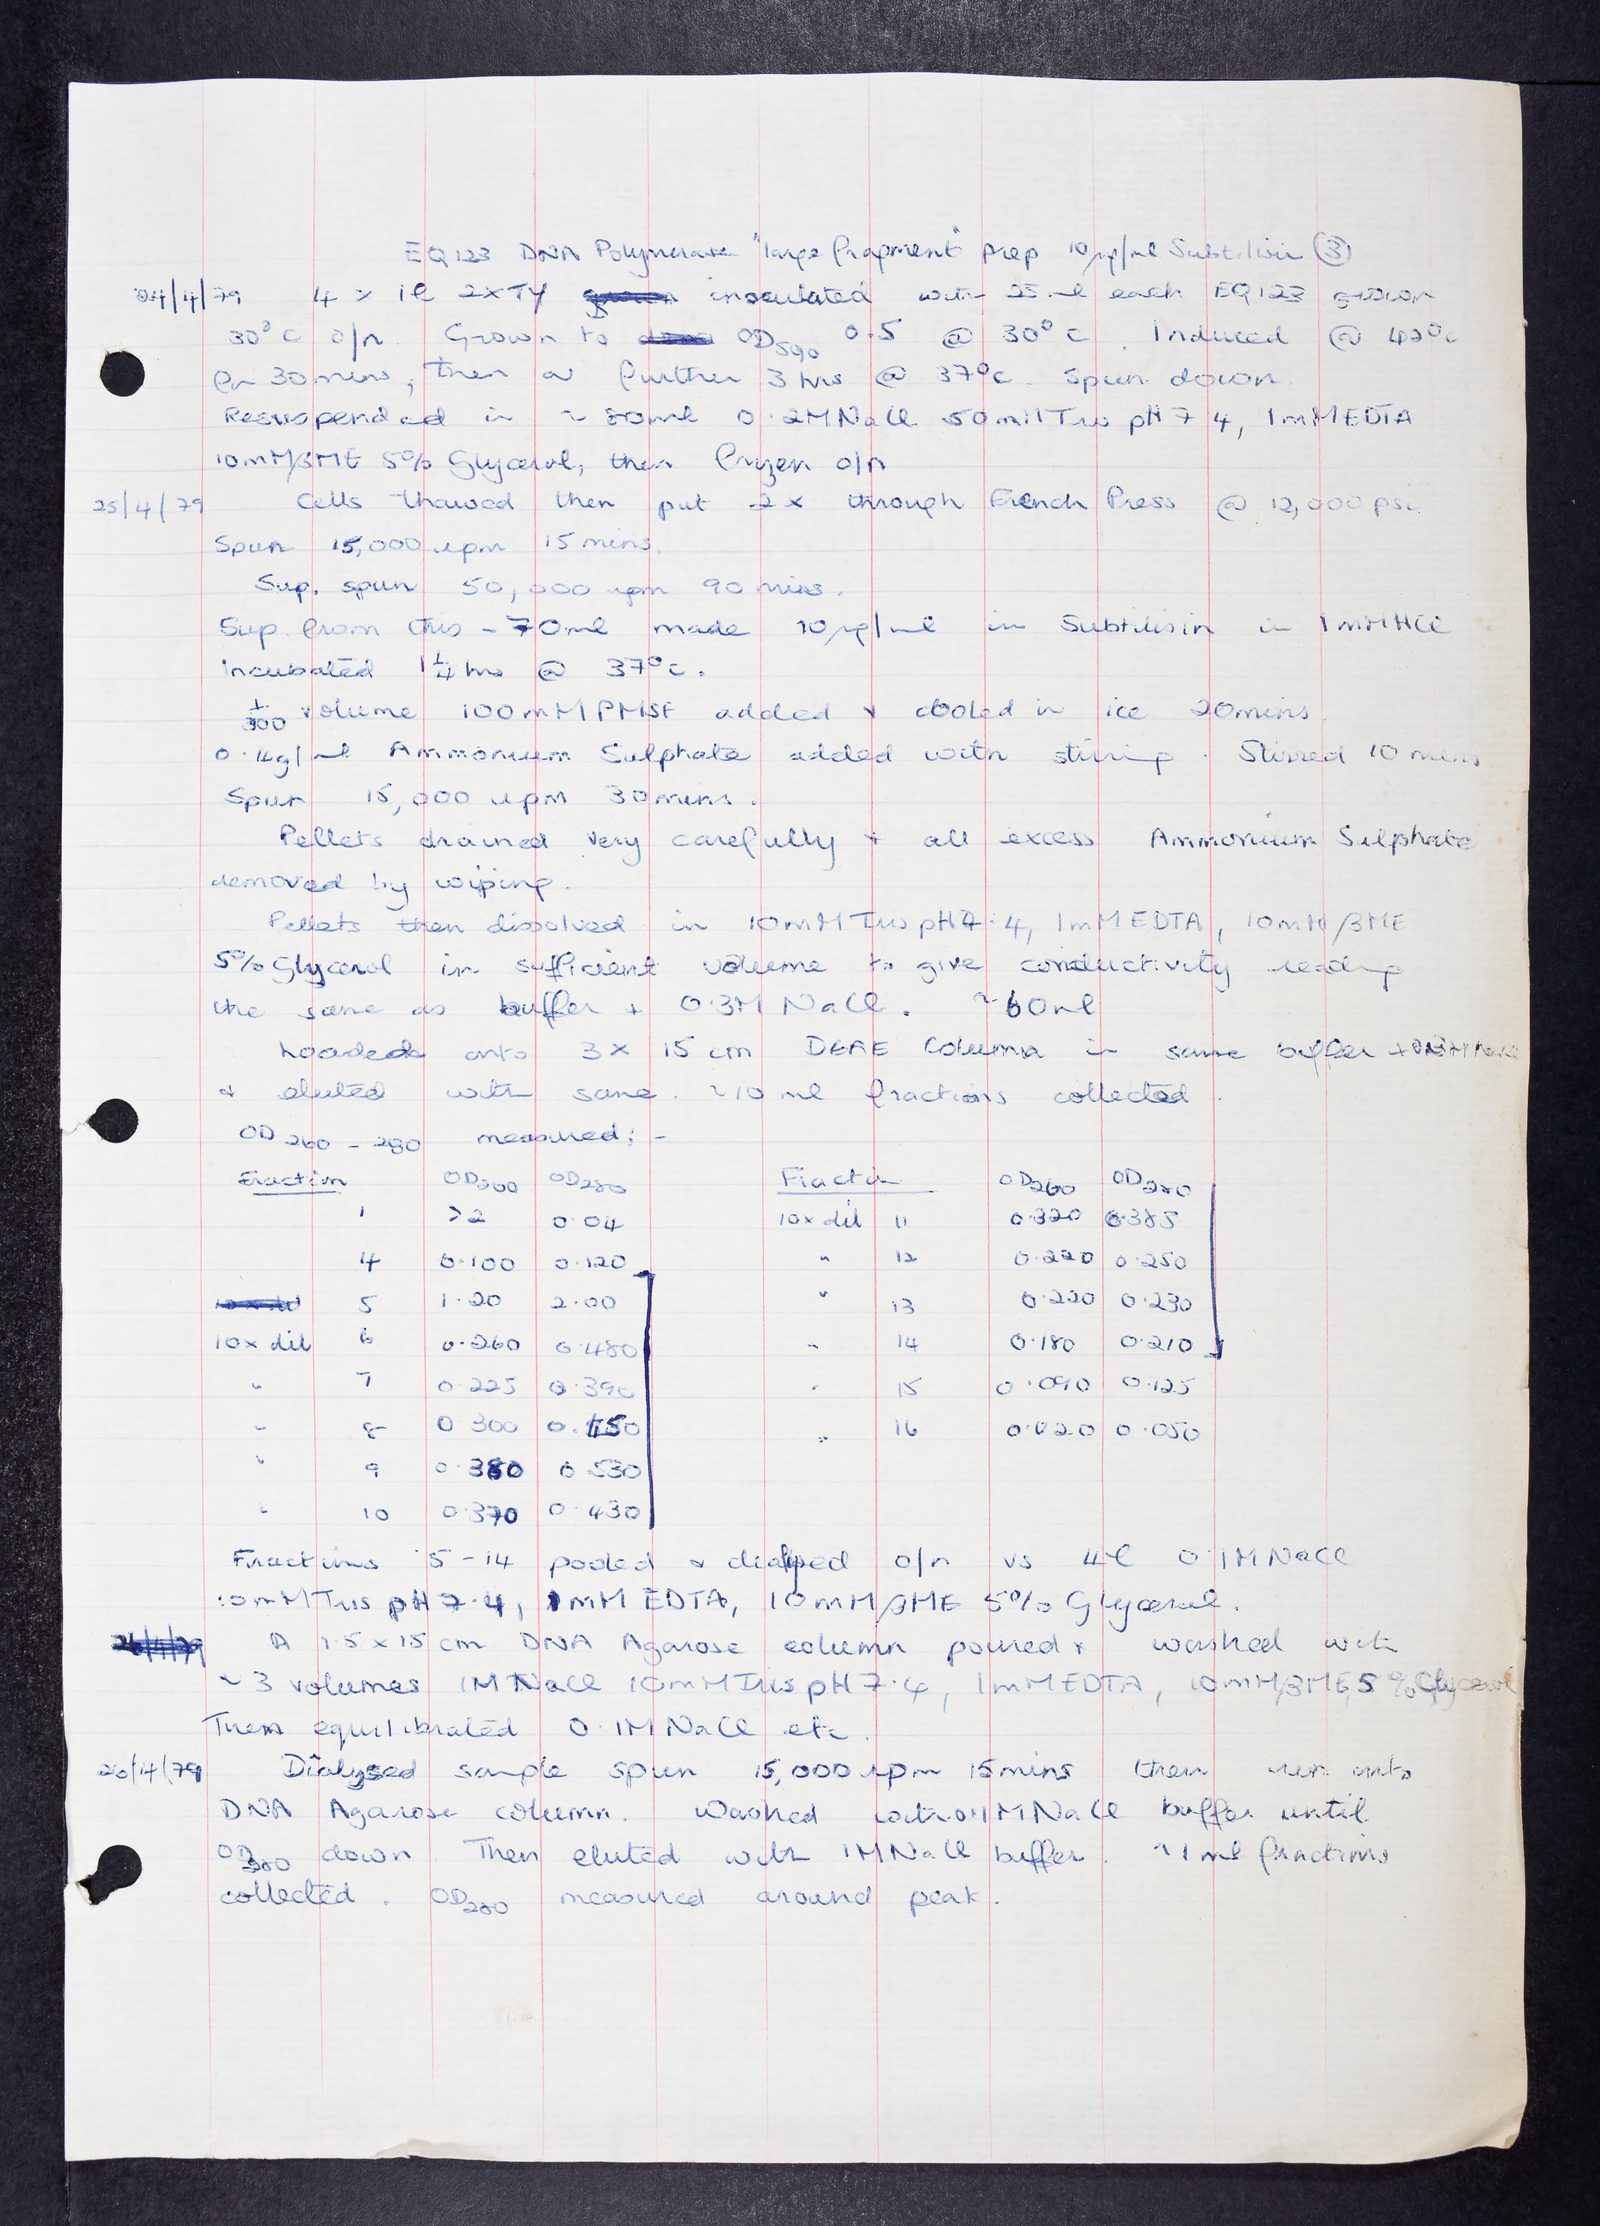 EQ123 DNA Polymerase "large fragment" prep 10µg/ml Subtilisin ③
24/4/79 4 x 1l 2xTY inoculated with 25ml each EQ123 grown
30°C o/n. Grown to OD590 0.5 @ 30°C. Induced @ 42°C
for 30mins, then a further 3hrs @ 37°C. Spun down.
Resuspended in ~80ml 0.2M NaCl 50mM Tris pH 7.4, 1mM EDTA
10mM βME 5% Glycerol, then frozen o/n
25/4/79 Cells thawed then put 2x through French Press @ 12,000 psi.
Spun 15,000 rpm 15 mins.
Sup. spun 50,000 rpm 90 mins.
Sup from this - 70ml made 10µg/ml in Subtilisin in 1mM HCl
incubated 1¼ hrs @ 37°C.
1/300 volume 100mM PMSF added & cooled in ice 20mins.
0.4g/ml Ammonium Sulphate added with stirring. Stirred 10 mins
Spun 15,000 rpm 30mins.
Pellets drained very carefully & all excess Ammonium Sulphate
removed by wiping.
Pellets then dissolved in 10mM Tris pH 7.4, 1mM EDTA, 10mM βME
5% Glycerol in sufficient volume to give conductivity reading
the same as buffer + 0.3M NaCl. ~60ml
Loaded onto 3 x 15 cm DEAE Column in same buffer + 0.3M NaCl
& eluted with same. ~10 ml fractions collected.
OD 260 - 280 measured; -
Fraction OD260 OD280 Fraction OD260 OD280
1 >2 0.04 10x dil 11 0.320 0.385
4 0.100 0.120 " 12 0.220 0.250
5 1.20 2.00 " 13 0.220 0.230
10x dil 6 0.260 0.480 " 14 0.180 0.210
" 7 0.225 0.390 " 15 0.090 0.125
" 8 0.300 " 16 0.020 0.050
" 9 0.530
" 10 0.370 0.430
Fractions 5-14 pooled & dialysed o/n vs 4l 0.1M NaCl
10mM Tris pH 7.4, 1mM EDTA, 10mM βME 5% Glycerol.
26/4/79 A 1.5 x 15 cm DNA Agarose column poured & washed with
~3 volumes 1M NaCl 10mM Tris pH 7.4, 1mM EDTA, 10mM βME, 5% Glycerol
Then equilibrated 0.1M NaCl etc.
26/4/79 Dialysed sample spun 15,000 rpm 15mins then run onto
DNA Agarose column. Washed with 0.1M NaCl buffer until
OD280 down. Then eluted with 1M NaCl buffer. ~1ml fractions
collected. OD280 measured around peak.